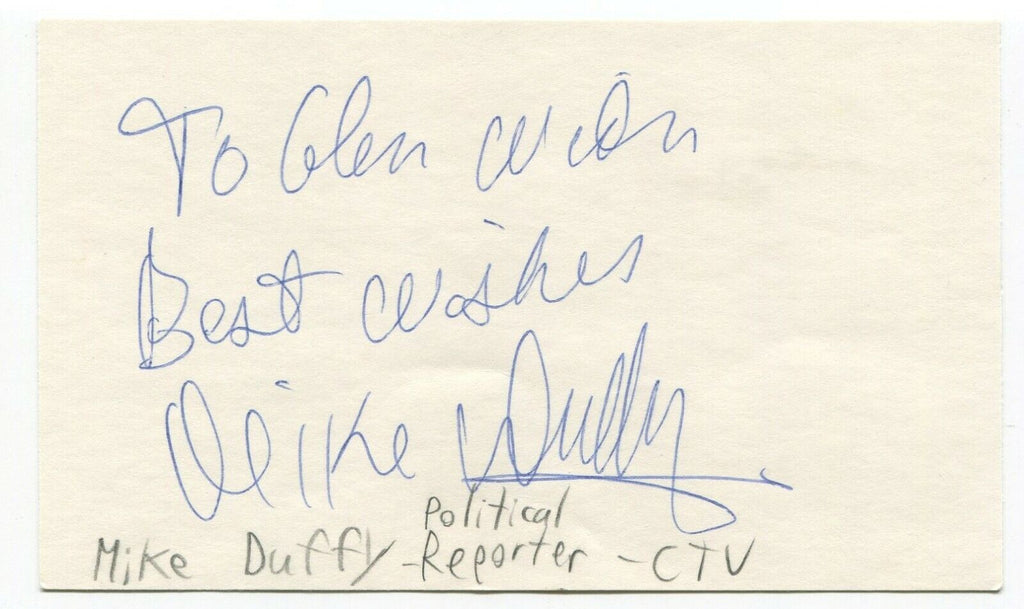 To Glen
Best wishes
Mike Duffy
Mike Duffy - Political Reporter - CTV